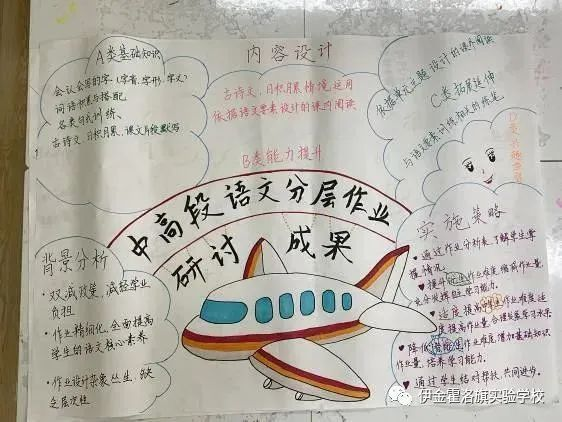 A类基础知识
会认会写的字(字音、字形、字义)
词语积累与搭配
各类句式训练、
古诗文、日积月累、课文片段默写
内容设计
古诗文、日积月累情境运用
依据语文要素设计的课内阅读
B类能力提升
依据单元主题设计的课外阅读
C类拓展延伸
与语文要素训练相关的练笔
中高段语文分层作业
研讨成果
背景分析
• 双减政策,减轻学业
负担
• 作业精细化,全面提高
学生的语文核心素养
• 作业设计杂象丛生,缺
乏层次性
实施策略
• 通过作业分析表了解学生掌
握情况
作业难度
适度提高
作业难度适
降低
作业难度增加基础知识
作业量,培养学习能力.
通过学生结对帮扶,共同进步.
伊金霍洛旗实验学校